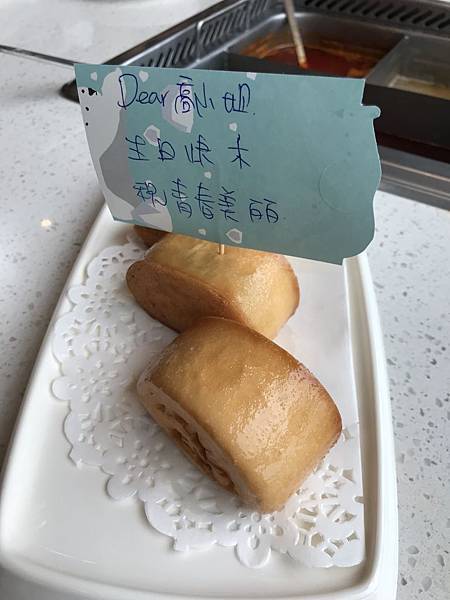 Dear 高小姐
生日快木
祝青春美丽